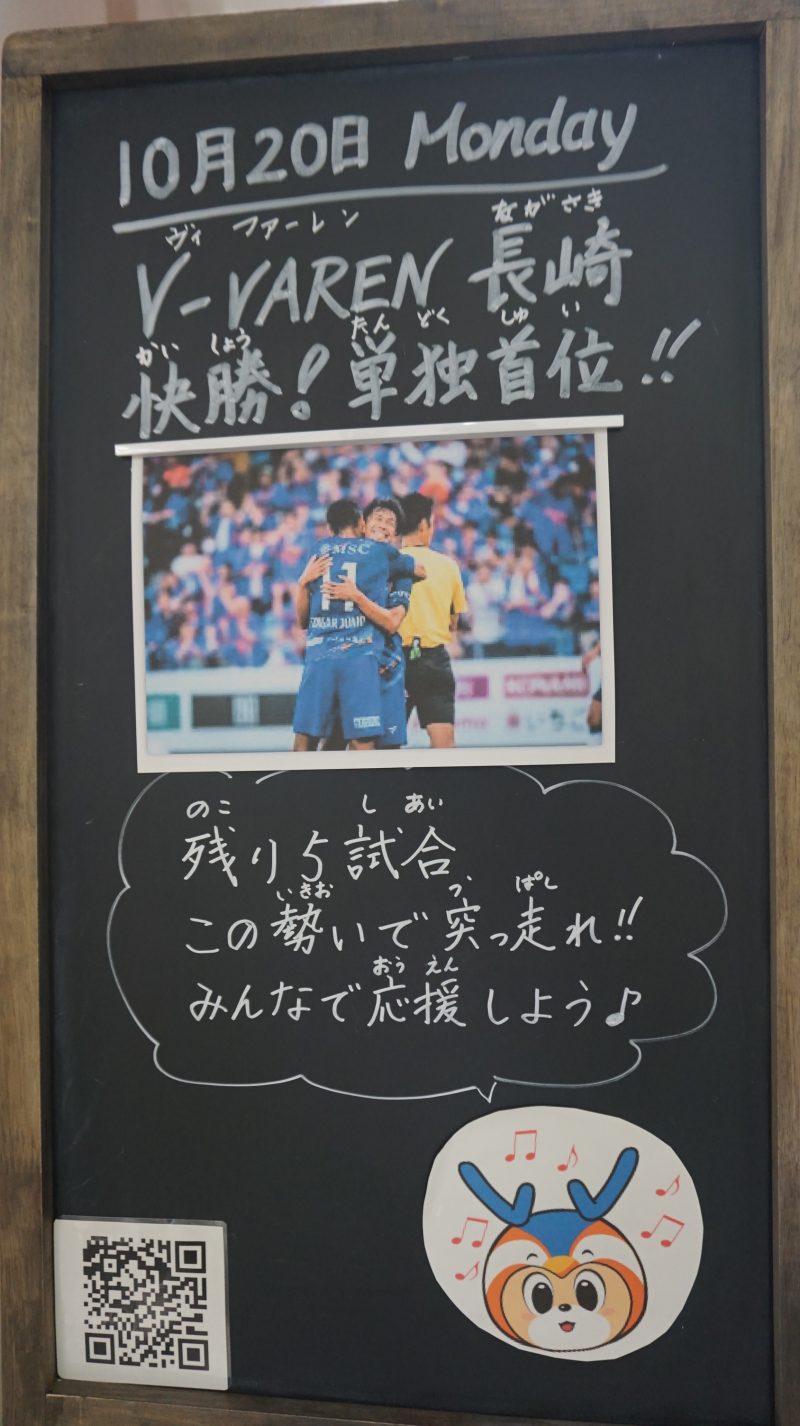 10月20日 Monday
ヴィ ファーレン ながさき
V-VAREN 長崎
かい しょう たん どく しゅ い
快勝！単独首位!!
MSC
11
EDIGAR JUNIO
のこ し あい
残り5試合
いきお つ ぱし
この勢いで突っ走れ!!
おう えん
みんなで応援しよう♪